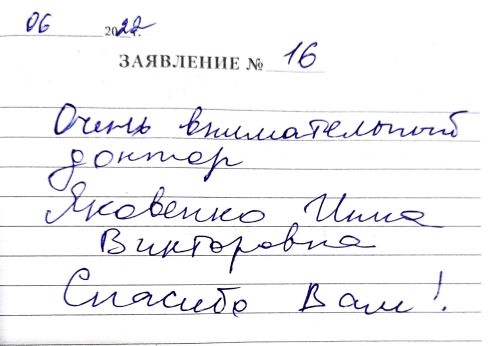 06 2022г.
ЗАЯВЛЕНИЕ № 16
Очень внимательный
доктор
Яковенко Инна
Викторовна
Спасибо Вам!